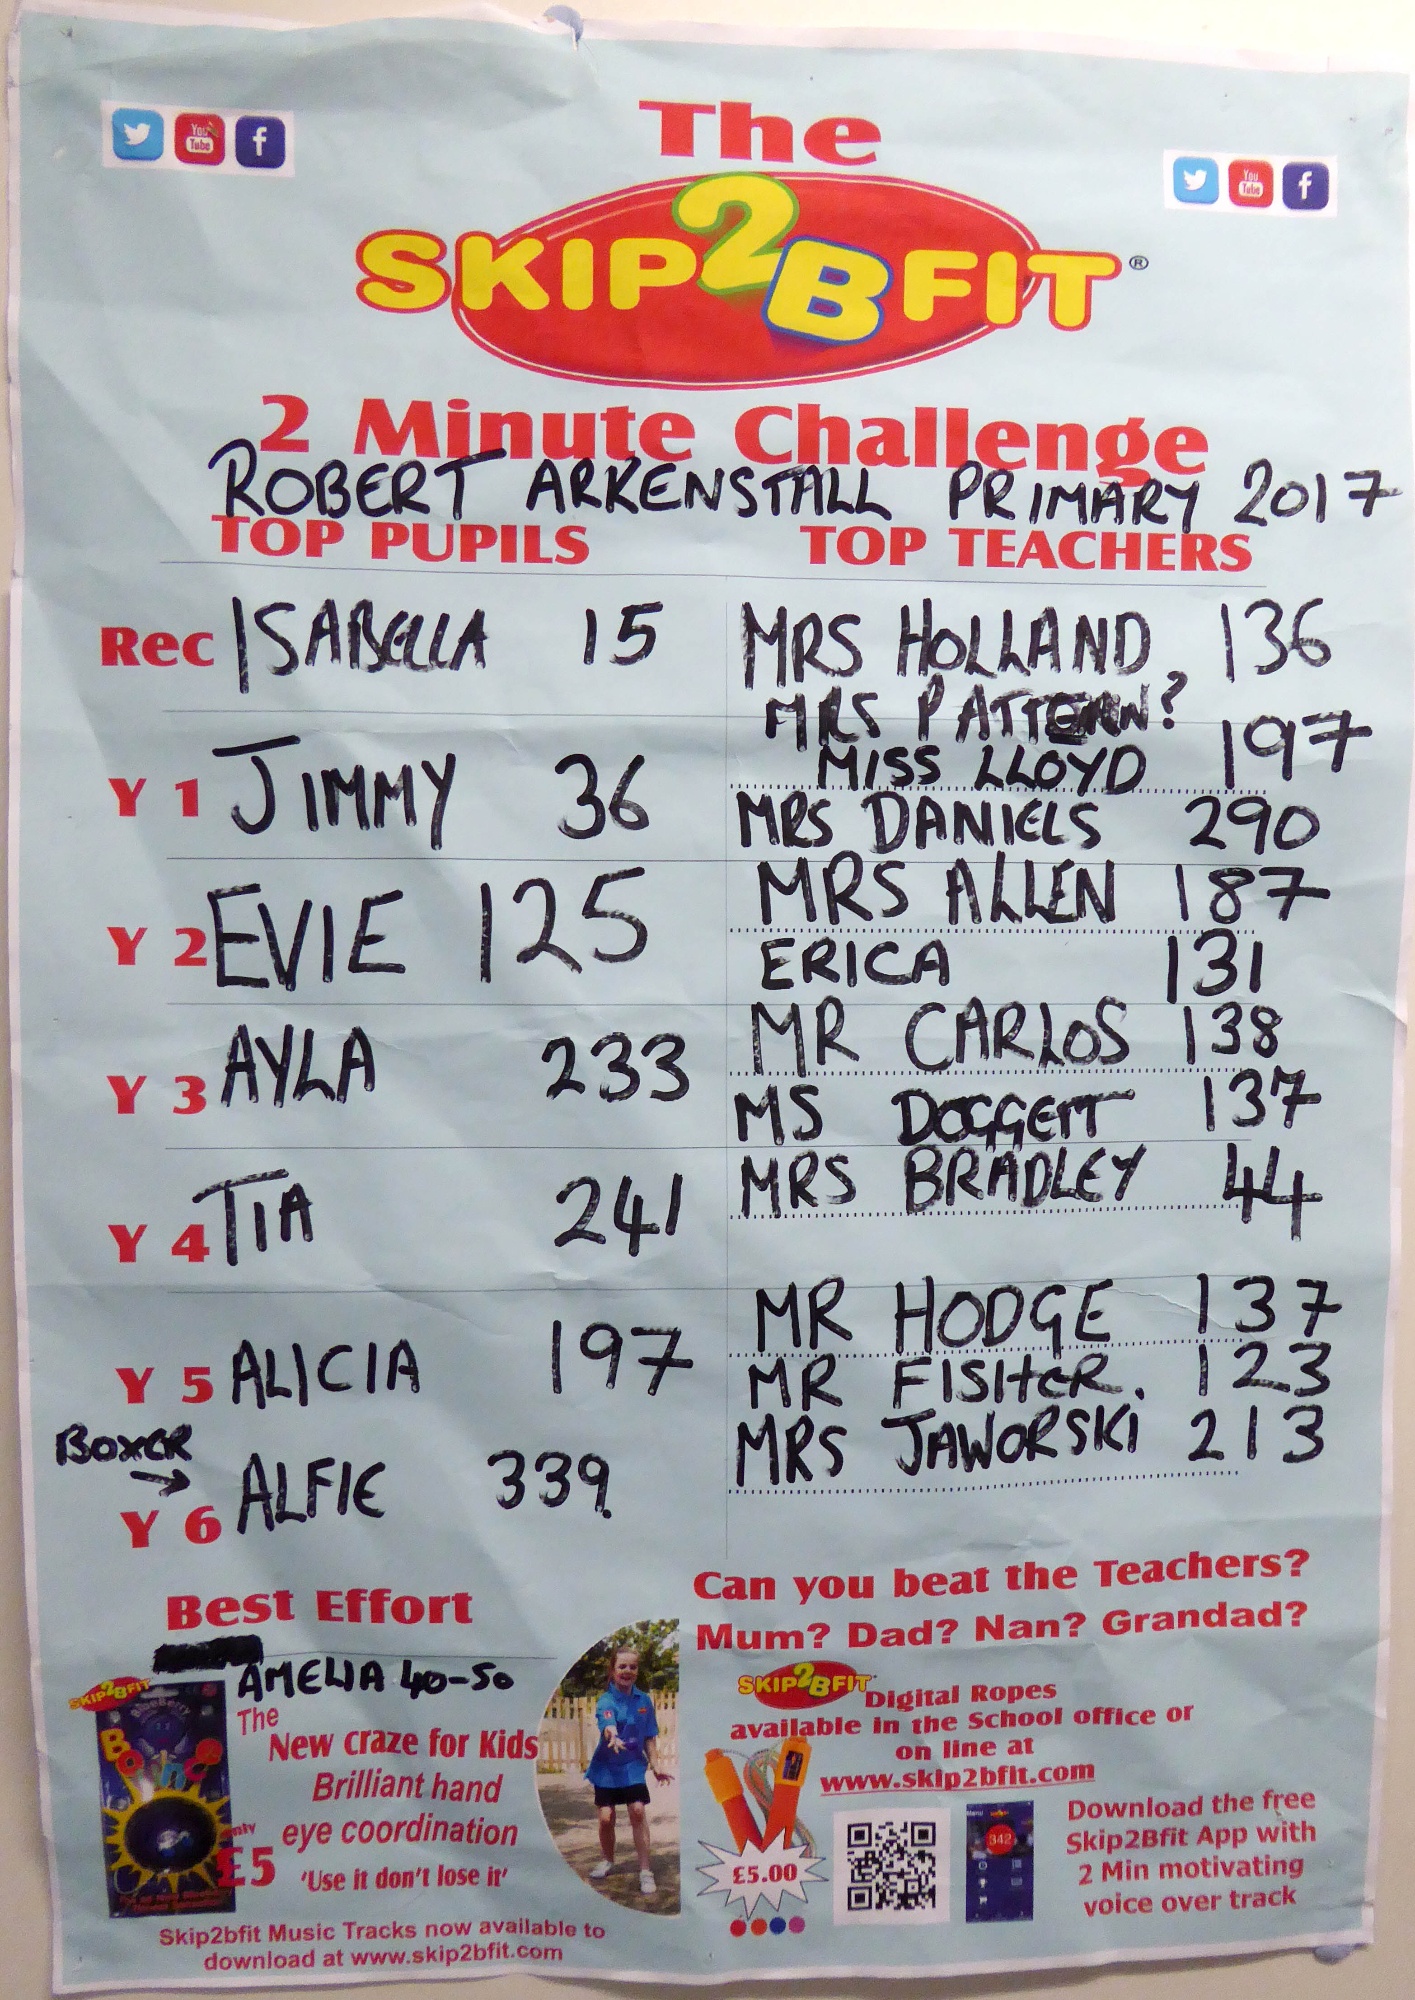 The
SKIP2BFIT®
2 Minute Challenge
ROBERT ARKENSTALL PRIMARY 2017
TOP PUPILS TOP TEACHERS
Rec ISABELLA 15
Y 1 JIMMY 36
Y 2 EVIE 125
Y 3 AYLA 233
Y 4 TIA 241
Y 5 ALICIA 197
BOXER →
Y 6 ALFIE 339.
MRS HOLLAND 136
MRS PATTERN?
MISS LLOYD 197
MRS DANIELS 290
MRS ALLEN 187
ERICA 131
MR CARLOS 138
MS DOGGETT 137
MRS BRADLEY 44
MR HODGE 137
MR FISHER. 123
MRS JAWORSKI 213
Best Effort
AMELIA 40-50
SKIP2BFIT
Bounce
The
New craze for Kids
Brilliant hand
eye coordination
only
£5
'Use it don't lose it'
Skip2bfit Music Tracks now available to
download at www.skip2bfit.com
Can you beat the Teachers?
Mum? Dad? Nan? Grandad?
SKIP2BFIT Digital Ropes
available in the School office or
on line at
www.skip2bfit.com
£5.00
342
Download the free
Skip2Bfit App with
2 Min motivating
voice over track
You Tube
You Tube